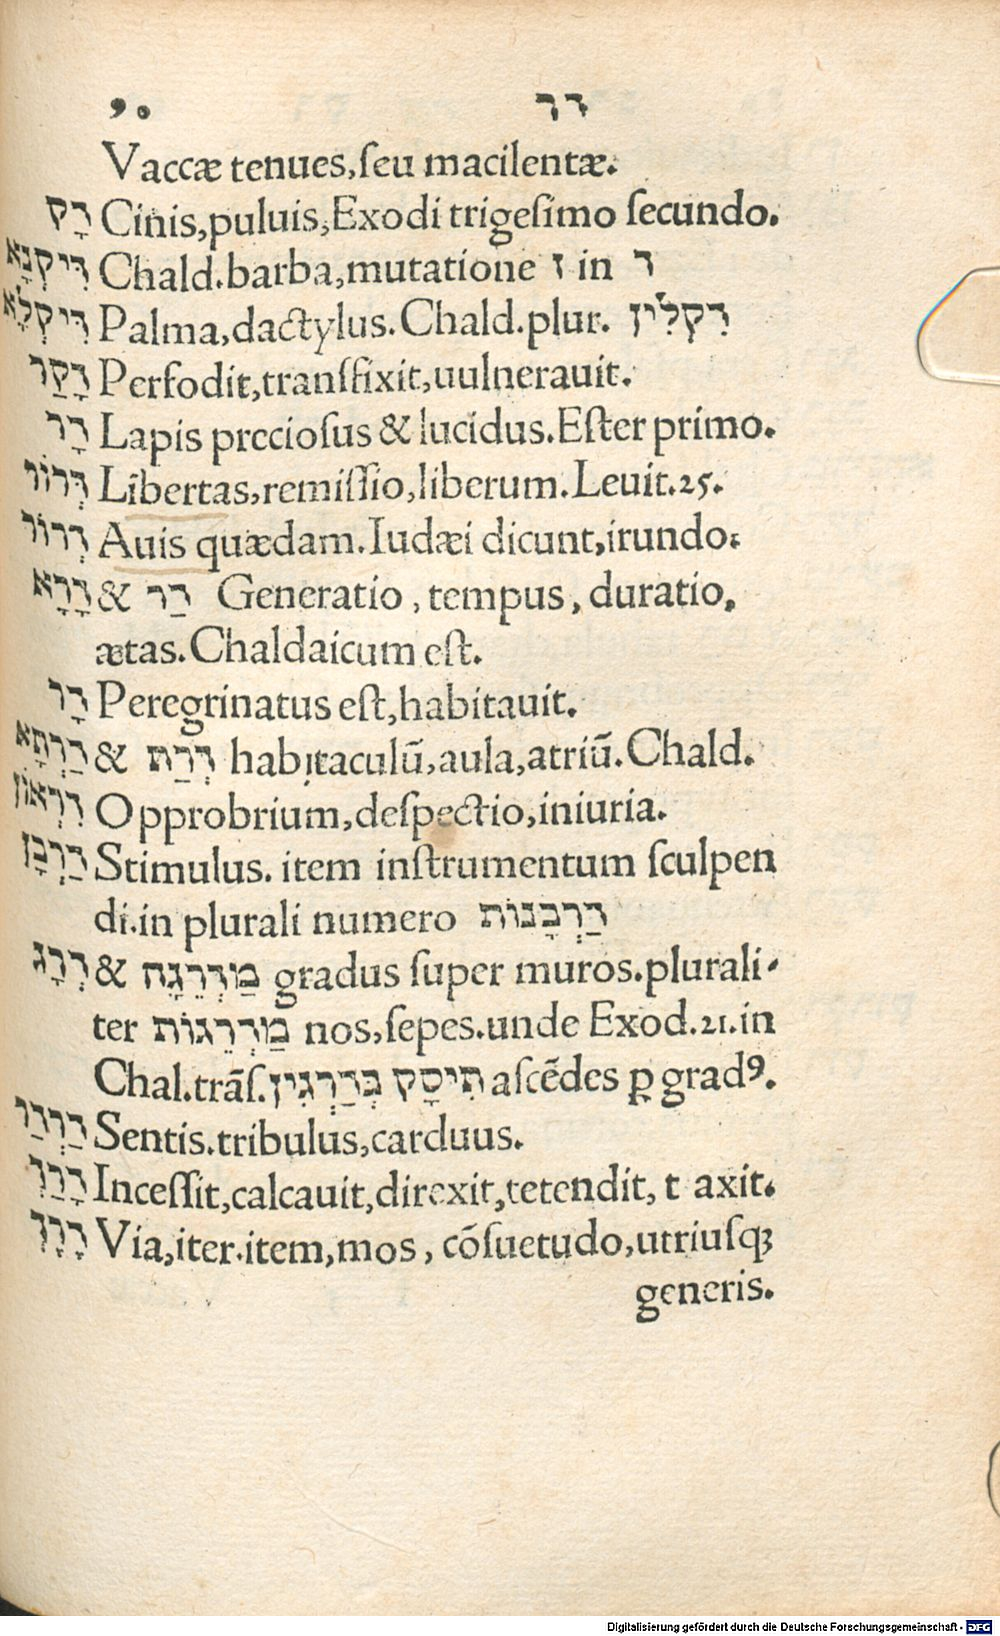 90 דר
Vaccæ tenues,ſeu macilentæ.
דָק Cinis,puluis,Exodi trigeſimo ſecundo.
דִּיקְנָא Chald.barba,mutatione ז in ד
דִּיקְלָא Palma,dactylus.Chald.plur. דִקְלִין
דָּקַר Perfodit,tranſfixit,uulnerauit.
דָר Lapis preciofus & lucidus.Eſter primo.
דְּרוֹר Libertas,remiſſio,liberum.Leuit.25.
דְרוֹר Auis quædam.Iudæi dicunt,irundo.
דָּרָא & דַר Generatio, tempus, duratio,
ætas.Chaldaicum eſt.
דָּר Peregrinatus eſt,habitauit.
דַּרְתָּא & דְרַת habitaculū,aula,atriū.Chald.
דִּרְאוֹן Opprobrium,deſpectio,iniuria.
דַּרְבָן Stimulus. item inſtrumentum ſculpen
di.in plurali numero דַּרְבָנוֹת
דְרָג & מַדְרֵגָה gradus ſuper muros.plurali-
ter מַדְרֵגוֹת nos,ſepes.unde Exod.21.in
Chal.trāſ. תִיסָק בְּדַרְגִין aſcēdes ꝑ gradꝰ.
דַּרְדַר Sentis.tribulus,carduus.
דָּרַךְ Inceſſit,calcauit,direxit,tetendit, t axit.
דָּרָךְ Via,iter.item,mos, cōſuetudo,utriuſqꝫ
generis.
Digitalisierung gefördert durch die Deutsche Forschungsgemeinschaft - DFG